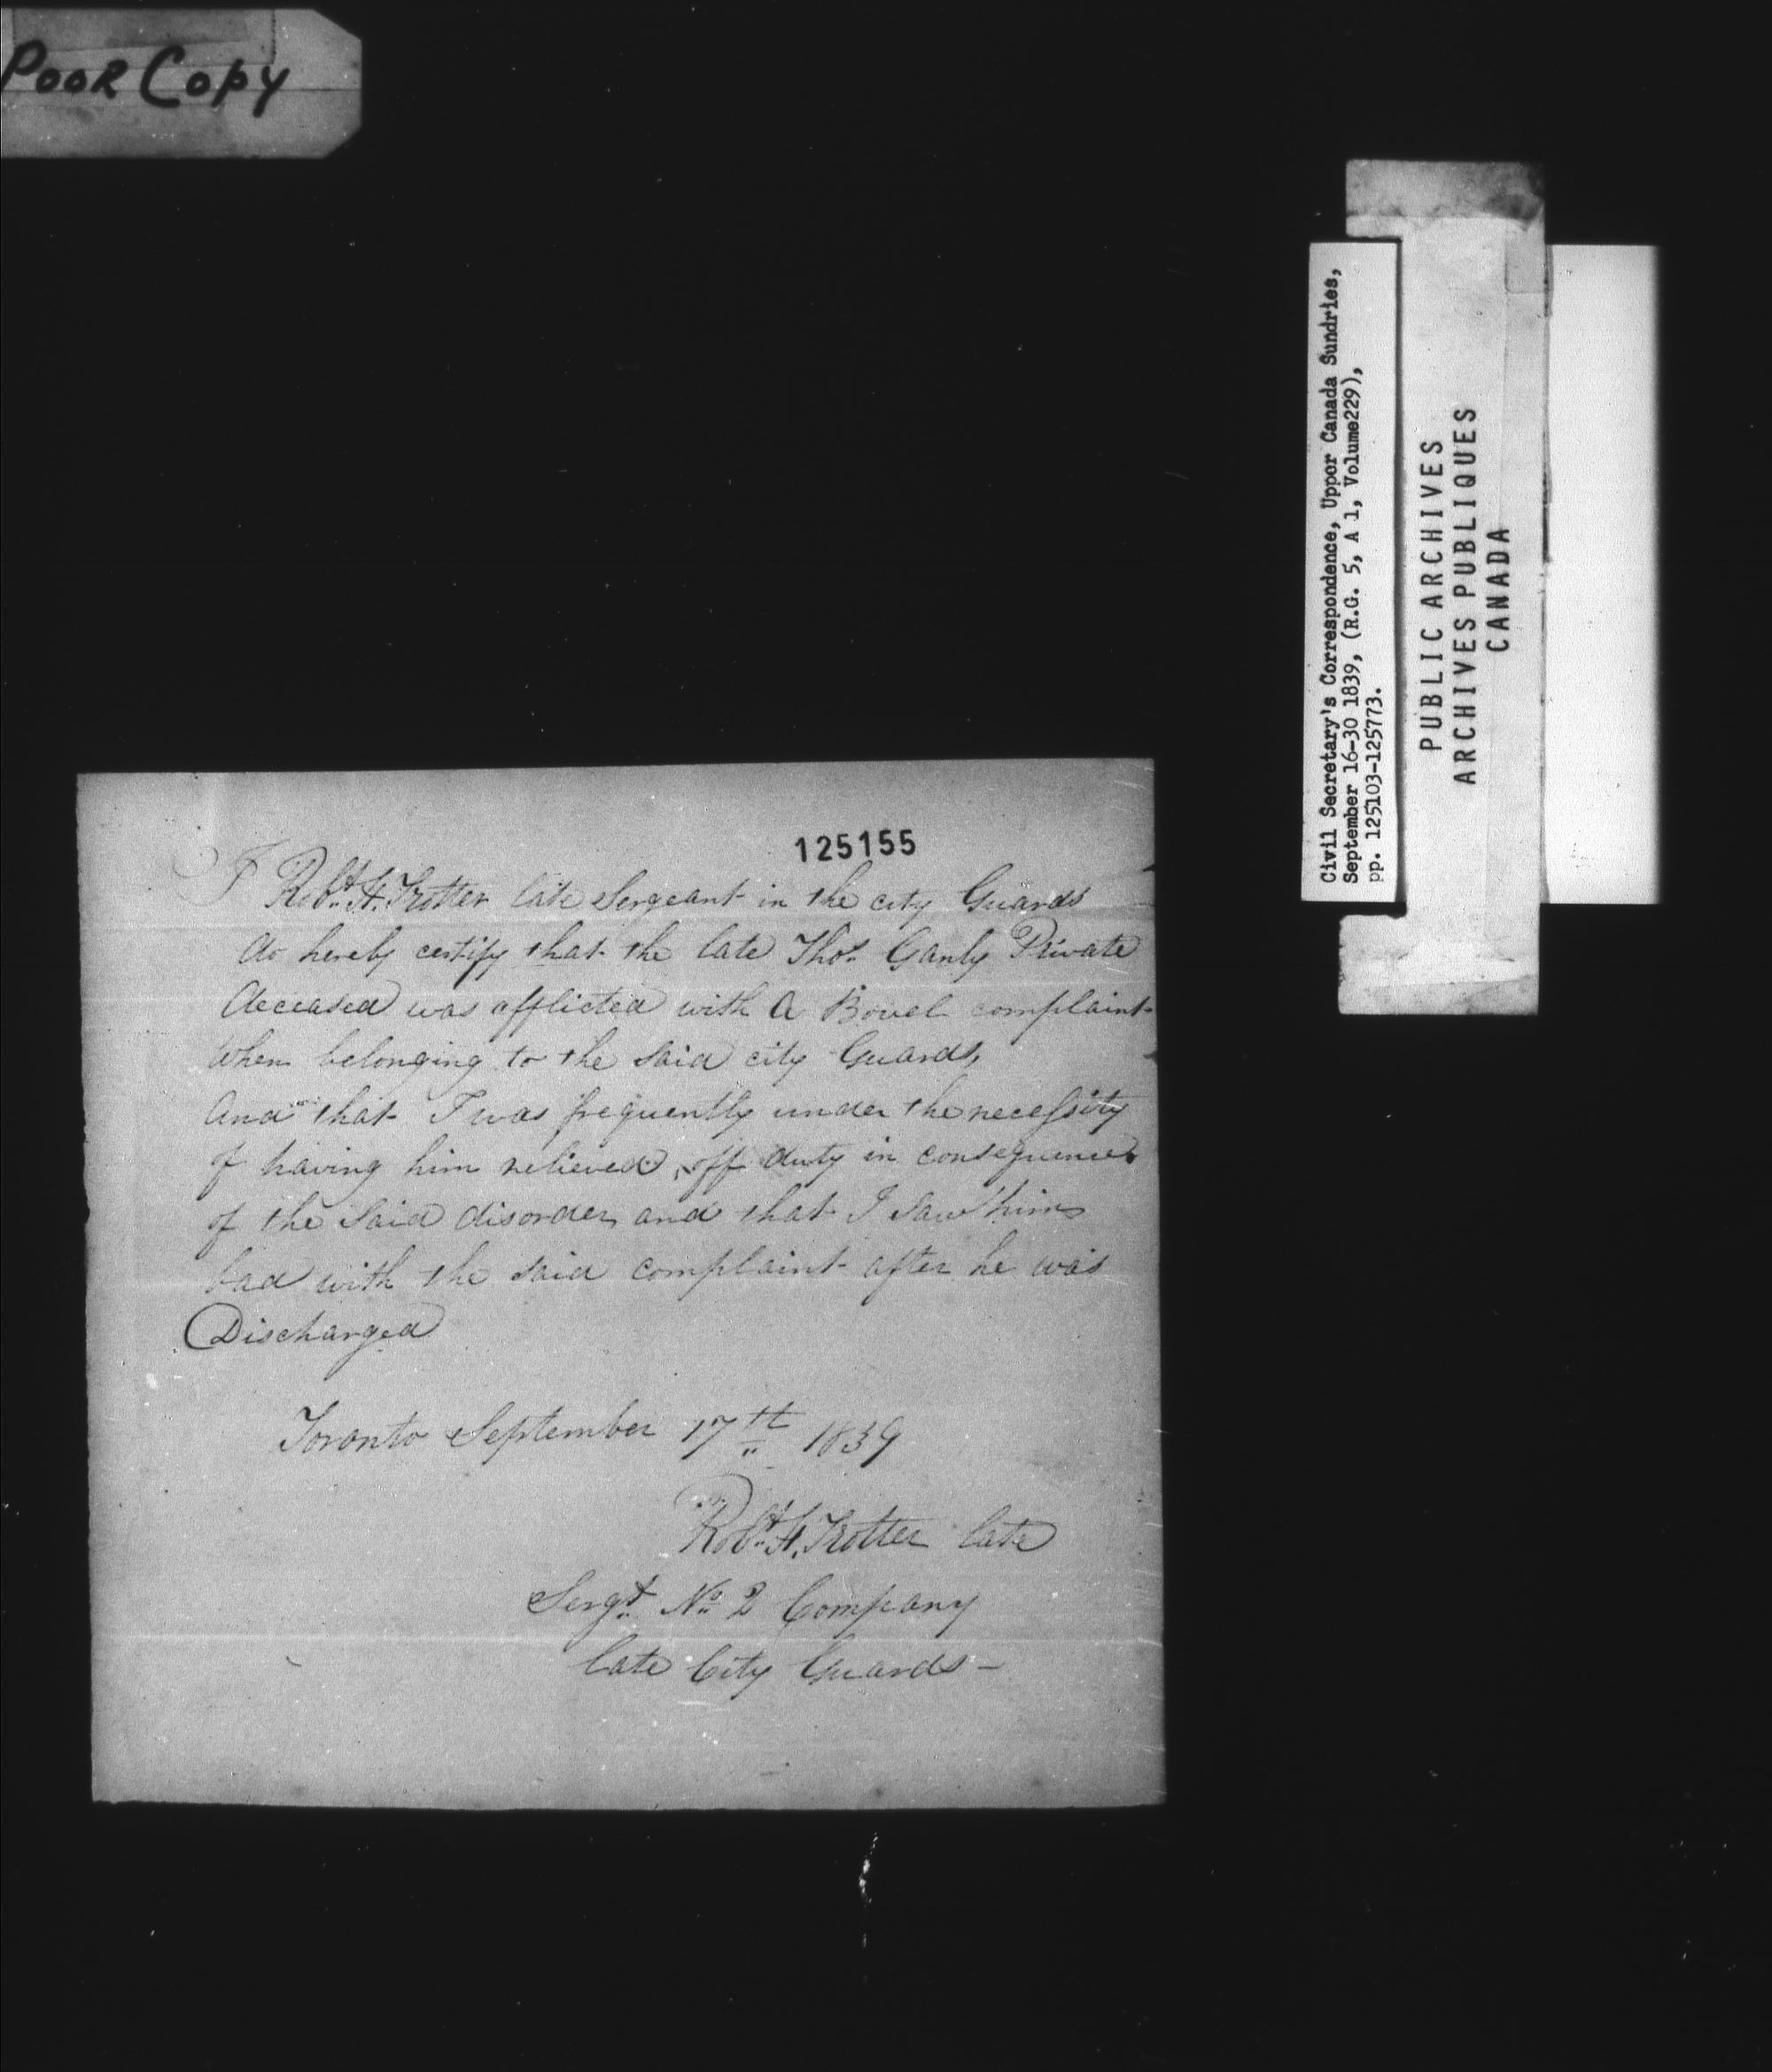 Poor Copy
125155
I Robt. H. Trotter late Sergeant in the city Guards
do hereby certify that the late Thos. Ganly Private
deceased was afflicted with A Bowel complaint
when belonging to the said city Guards,
And that I was frequently under the necessity
of having him relieved off duty in consequence
of the said disorder and that I saw him
bad with the said complaint after he was
Discharged
Toronto September 17th 1839
Robt. H. Trotter late
Sergt. No. 2 Company
late City Guards -
Civil Secretary's Correspondence, Uppor Canada Sundries,
September 16-30 1839, (R.G. 5, A 1, Volume229),
pp. 125103-125773.
PUBLIC ARCHIVES
ARCHIVES PUBLIQUES
CANADA